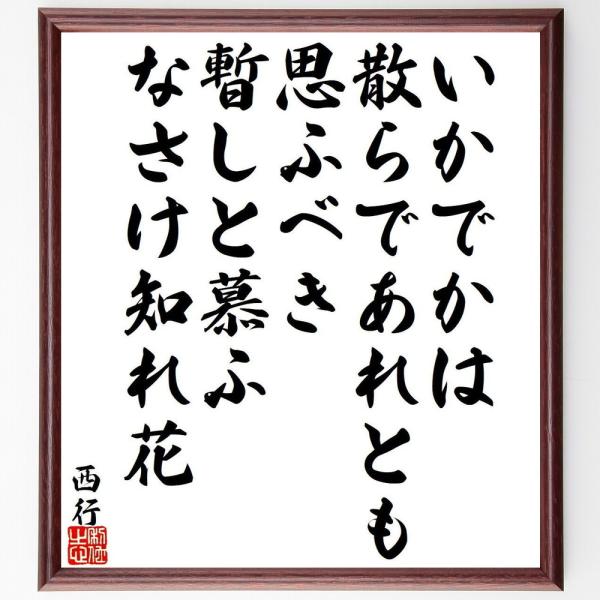 いかでかは
散らであれとも
思ふべき
暫しと慕ふ
なさけ知れ花
西行